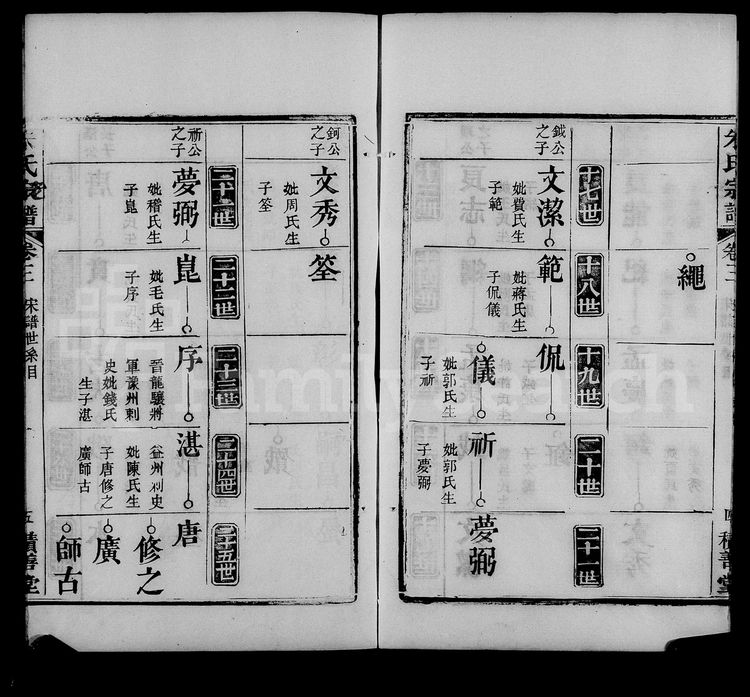 朱氏宗譜
卷二
積善堂
繩
十七世
十八世
十九世
二十世
二十一世
鉞公
之子
文潔
妣費氏生
子範
範
妣蔣氏生
子侃儀
侃
儀
妣郭氏生
子祈
祈
妣郭氏生
子夢弼
夢弼
鈳公
之子
文秀
妣周氏生
子筌
筌
二十一世
二十二世
二十三世
二十四世
二十五世
祈公
之子
夢弼
妣稽氏生
子崑
崑
妣毛氏生
子序
序
晉龍驤將
軍漾州刺
史妣錢氏
生子湛
湛
益州刺史
妣陳氏生
子唐修之
廣師古
唐
修之
廣
師古
朱氏宗譜
卷二
宋譜世系目
五
積善堂